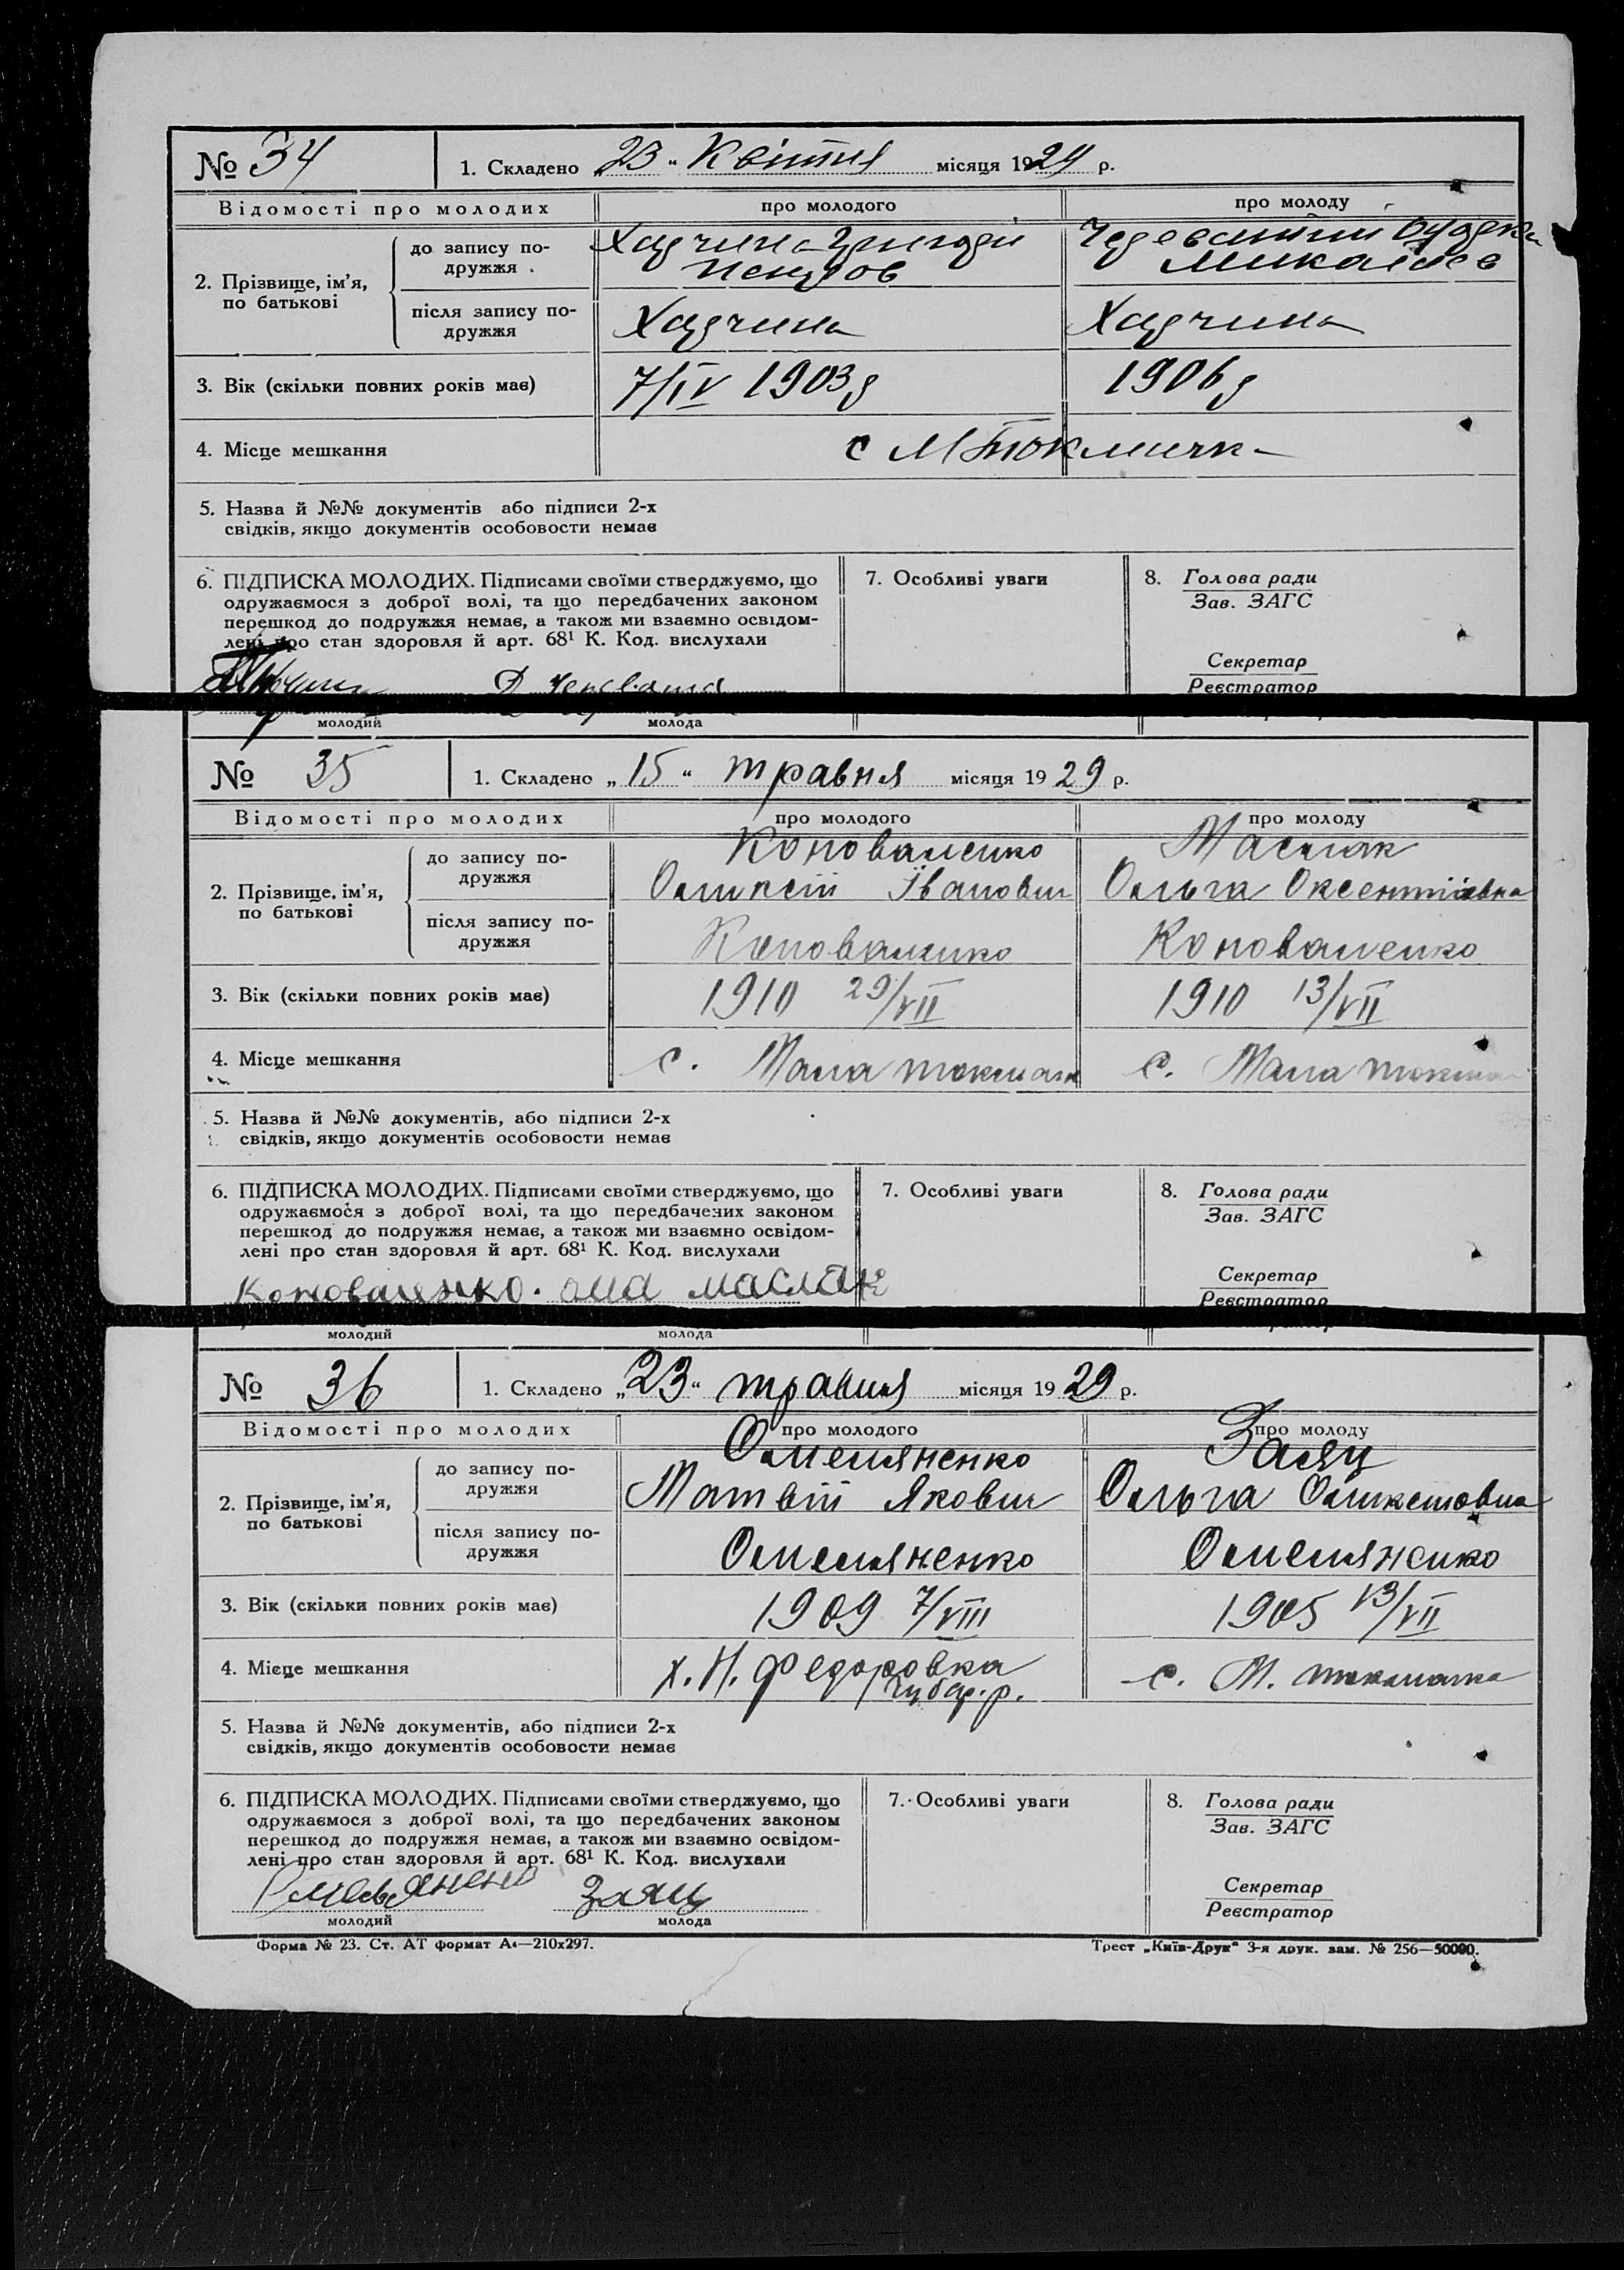 № 34 1. Складено „23“ Квітня місяця 1929 р.
Відомості про молодих про молодого про молоду
2. Прізвище, ім'я, по батькові
до запису по-
дружжя
після запису по-
дружжя
Харчина Микалаев
Харчина Харчина
3. Вік (скільки повних років має) 7/IV 1903р 1906р
4. Місце мешкання с М Токмачк
5. Назва й №№ документів або підписи 2-х
свідків, якщо документів особовости немає
6. ПІДПИСКА МОЛОДИХ. Підписами своїми стверджуємо, що
одружаємося з доброї волі, та що передбачених законом
перешкод до подружжя немає, а також ми взаємно освідом-
лені про стан здоровля й арт. 68¹ К. Код. вислухали
7. Особливі уваги
8. Голова ради
Зав. ЗАГС
Секретар
Реєстратор
молодий молода
№ 35 1. Складено „15“ травня місяця 1929 р.
Відомості про молодих про молодого про молоду
2. Прізвище, ім'я,
по батькові
до запису по-
дружжя
після запису по-
дружжя
Коноваленко Маслак
Оликсій Іванович Ольга Оксентіівна
Коноваленко Коноваленко
3. Вік (скільки повних років має) 1910 29/VII 1910 13/VII
4. Місце мешкання с. Мала токмачк с. Мала
5. Назва й №№ документів, або підписи 2-х
свідків, якщо документів особовости немає
6. ПІДПИСКА МОЛОДИХ. Підписами своїми стверджуємо, що
одружаємося з доброї волі, та що передбачених законом
перешкод до подружжя немає, а також ми взаємно освідом-
лені про стан здоровля й арт. 68¹ К. Код. вислухали
7. Особливі уваги
8. Голова ради
Зав. ЗАГС
Секретар
Реєстратор
Коноваленко. маслак
молодий молода
№ 36 1. Складено „23“ травня місяця 1929 р.
Відомості про молодих про молодого про молоду
2. Прізвище, ім'я,
по батькові
до запису по-
дружжя
після запису по-
дружжя
Омеляненко Заяц
МатвійЯкович Ольга
Омеляненко Омеляненко
3. Вік (скільки повних років має) 1909 7/VIII 1905 13/VII
4. Місце мешкання х. Н. Федоровка с. М. токмачка
Чубар. р.
5. Назва й №№ документів, або підписи 2-х
свідків, якщо документів особовости немає
6. ПІДПИСКА МОЛОДИХ. Підписами своїми стверджуємо, що
одружаємося з доброї волі, та що передбачених законом
перешкод до подружжя немає, а також ми взаємно освідом-
лені про стан здоровля й арт. 68¹ К. Код. вислухали
7. Особливі уваги
8. Голова ради
Зав. ЗАГС
Секретар
Реєстратор
Заяц
молодий молода
Форма № 23. Ст. АТ формат А4—210х297. Трест „Київ-Друк“ 3-я друк. зам. № 256—50000.